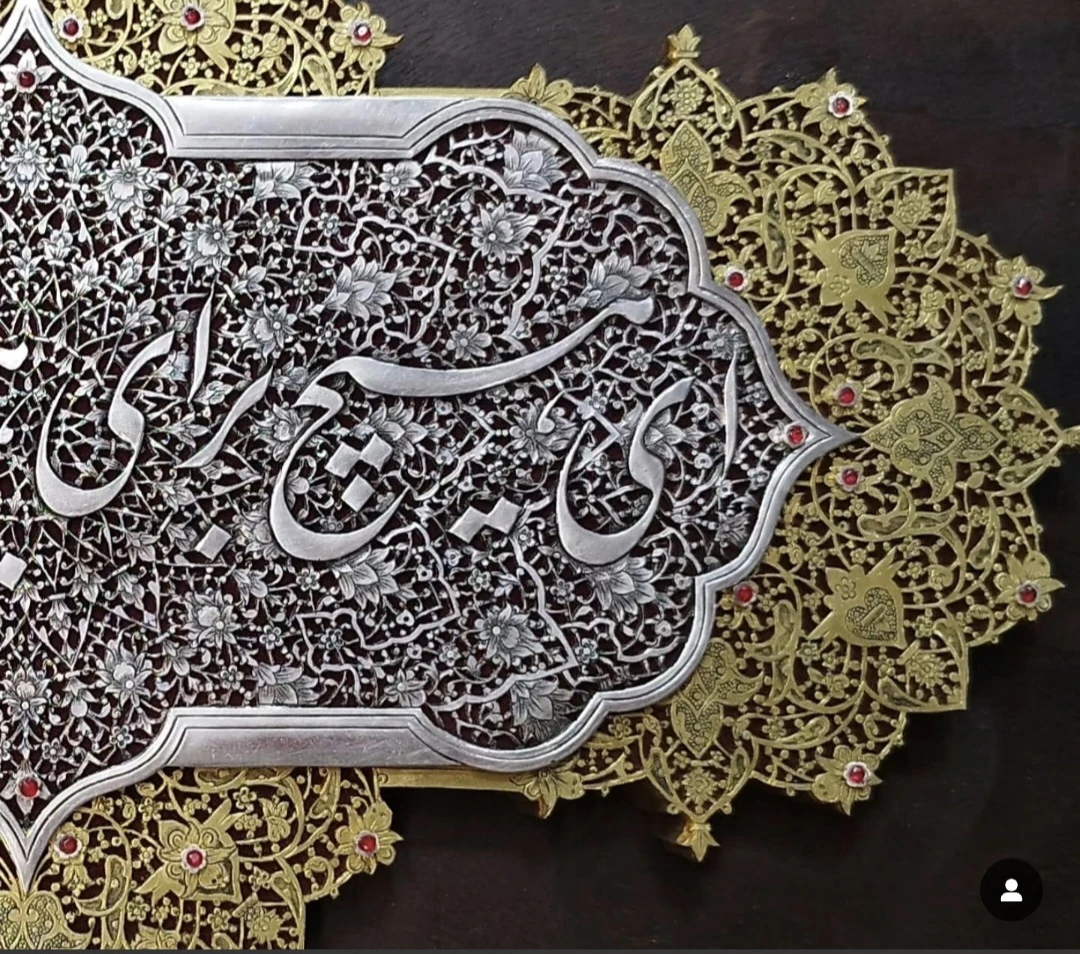 ای هیچ برای